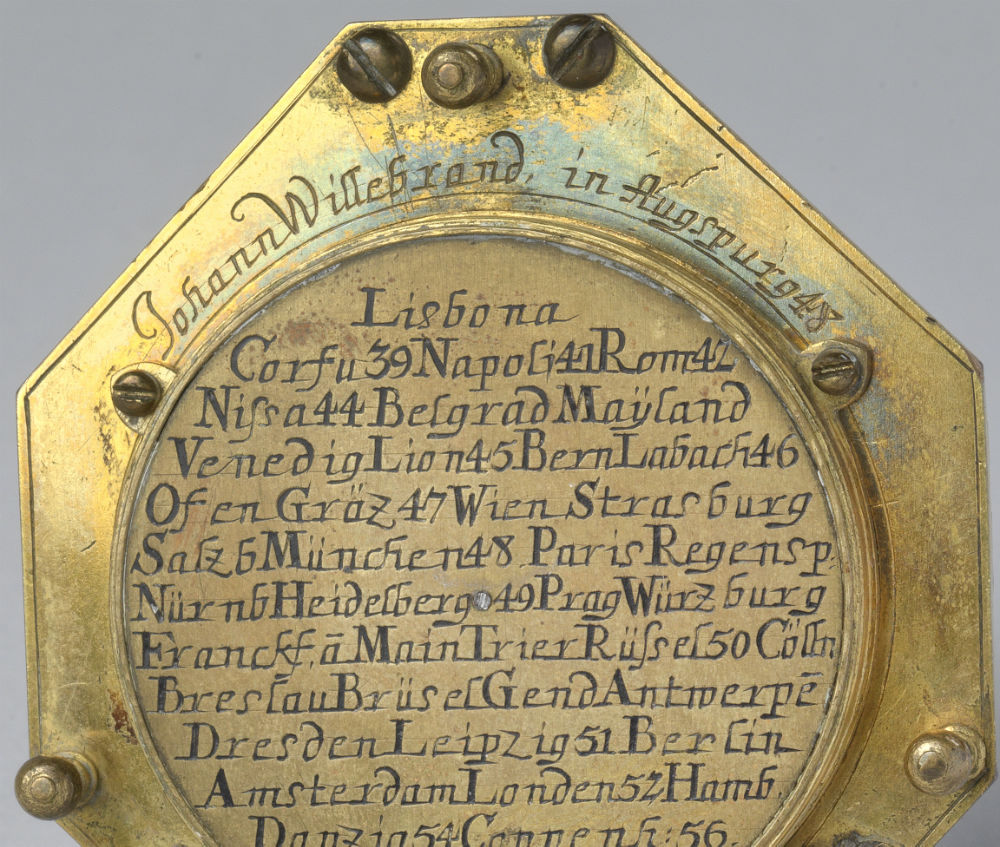 Johann Willebrand, in Augspurg 48
Lisbona
Corfu 39 Napoli 41 Rom 42
Nissa 44 Belgrad Maÿland
Venedig Lion 45 Bern Labach 46
Ofen Gräz 47 Wien Strasburg
Salzb München 48 Paris Regensp:
Nürnb Heidelberg 49 Prag Würzburg
Franckf. ā Main Trier Rüssel 50 Cölln
Breslau Brüsel Gend Antwerpē
Dresden Leipzig 51 Berlin
Amsterdam Londen 52 Hamb.
Danzig 54 Coppenh: 56.